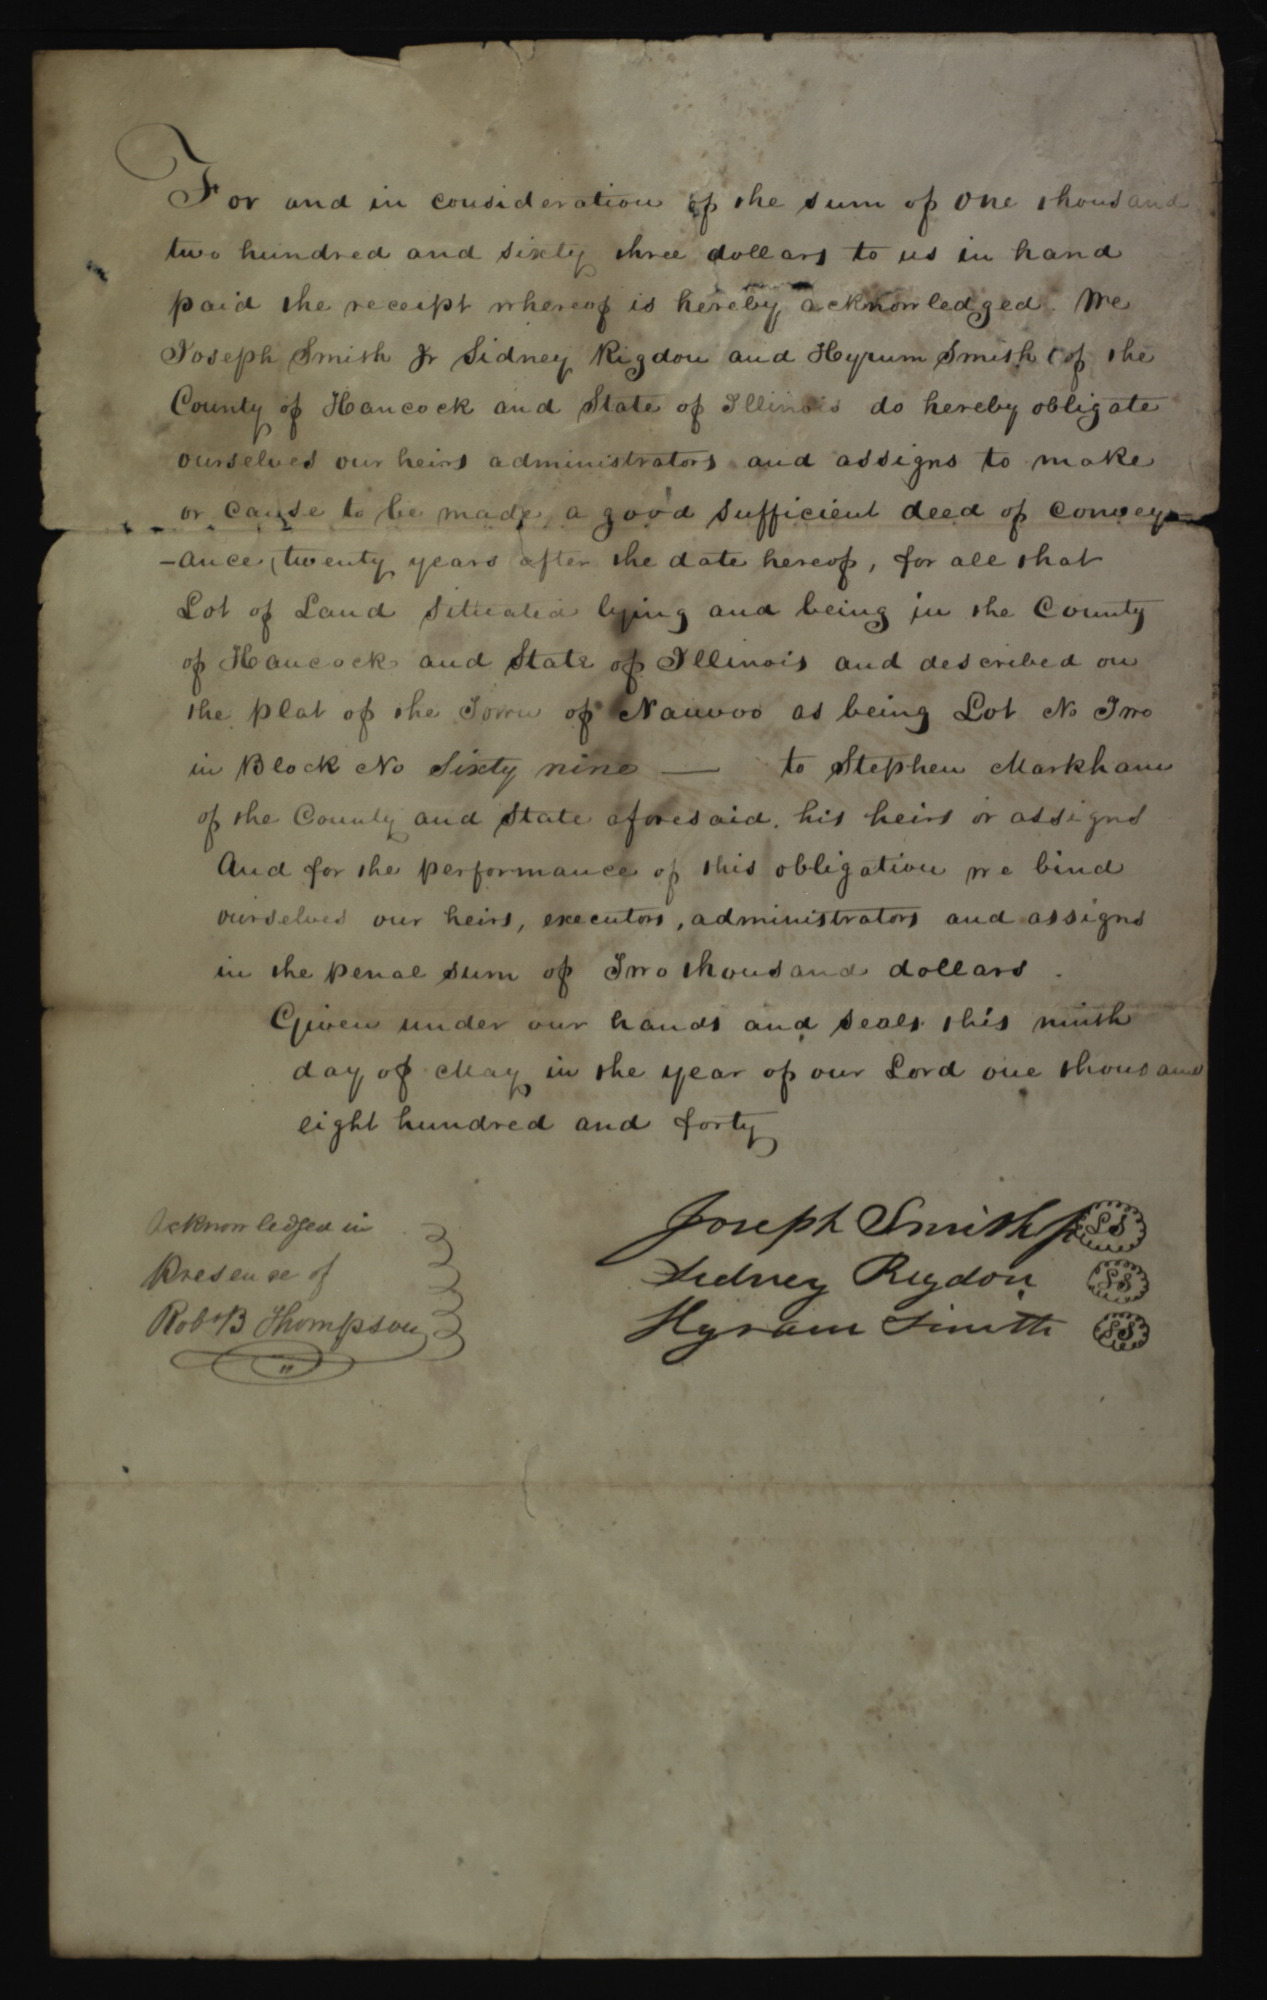 For and in consideration of the sum of one thousand
two hundred and sixty three dollars to us in hand
paid the receipt whereof is hereby acknowledged. We
Joseph Smith Jr Sidney Rigdon and Hyrum Smith (of the
County of Hancock and State of Illinois do hereby obligate
ourselves our heirs administrators and assigns to make
or cause to be made, a good sufficient deed of convey
-ance, twenty years after the date hereof, for all that
Lot of Land situated lying and being in the County
of Hancock and State of Illinois and described on
the plat of the Town of Nauvoo as being Lot No Two
in Block No Sixty nine — to Stephen Markham
of the County and State aforesaid, his heirs or assigns
And for the performance of this obligation we bind
ourselves our heirs, executors, administrators and assigns
in the penal sum of Two thousand dollars.
Given under our hands and seals this ninth
day of May in the year of our Lord one thousand
eight hundred and forty
Acknowledged in
Presense of
Robt B Thompson
Joseph Smith Jr LS
Sidney Rigdon SS
Hyrum Smith SS